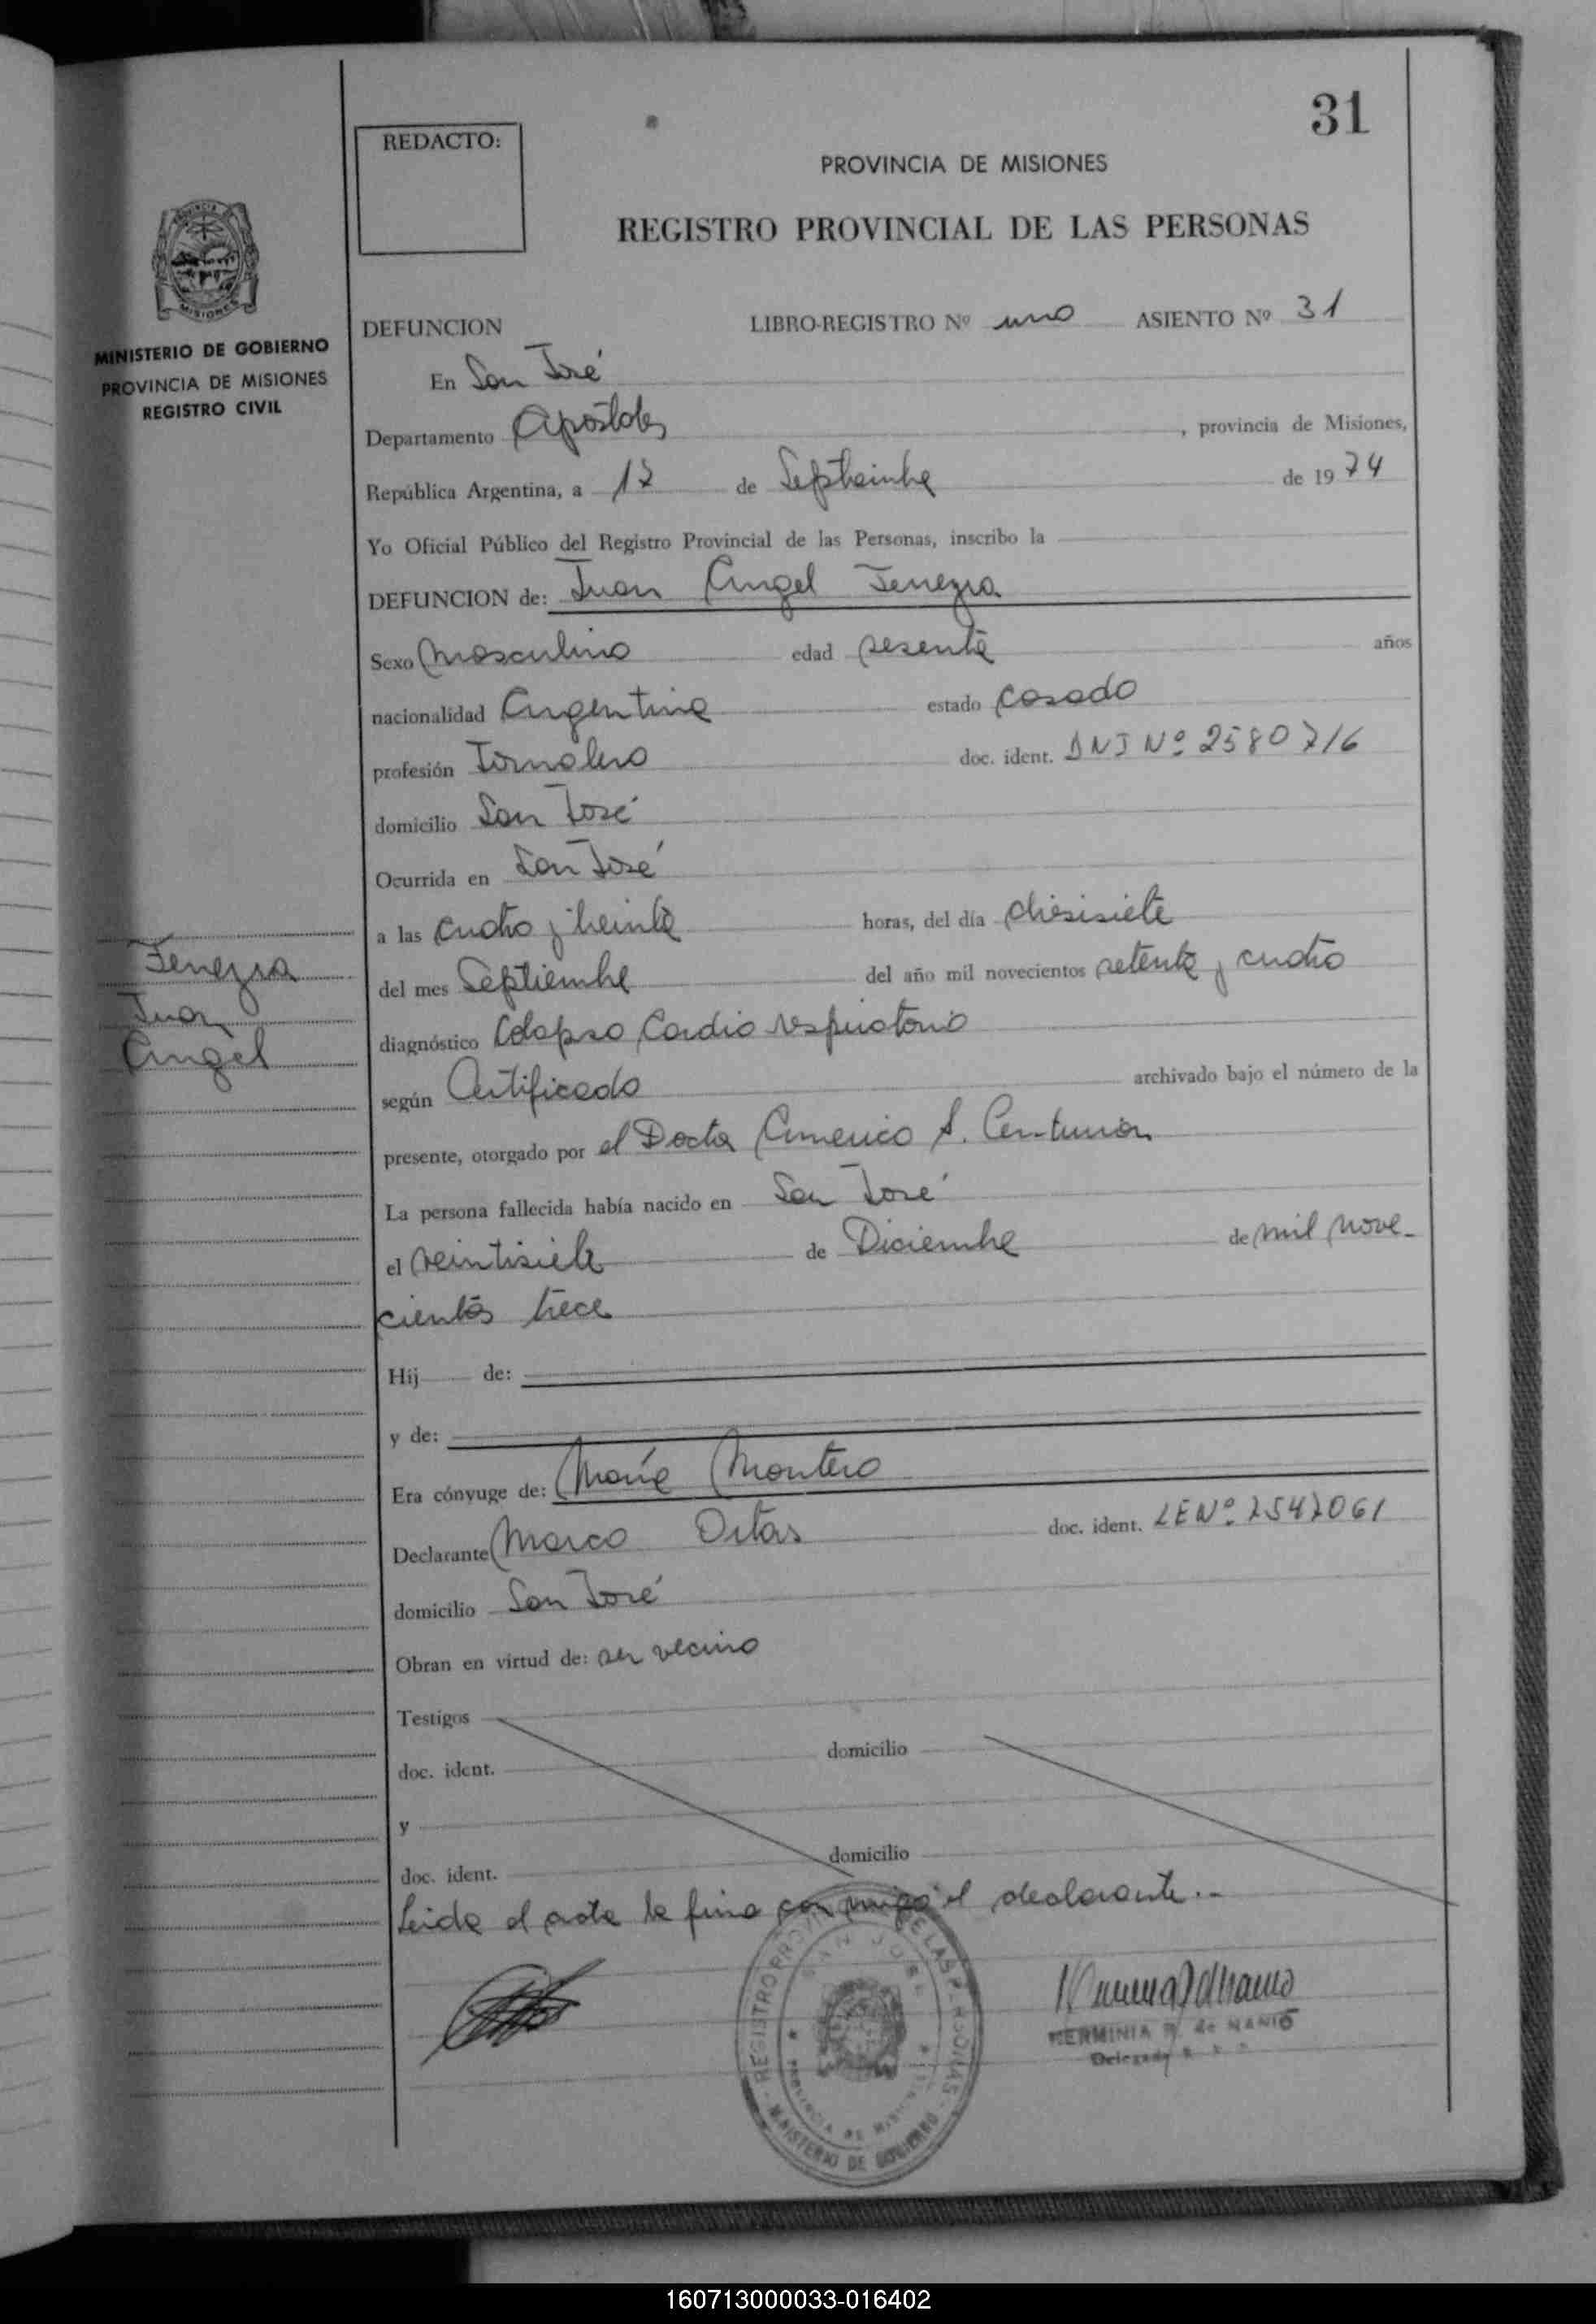 31
REDACTO:
PROVINCIA DE MISIONES
REGISTRO PROVINCIAL DE LAS PERSONAS
MISIONES
MINISTERIO DE GOBIERNO
PROVINCIA DE MISIONES
REGISTRO CIVIL
DEFUNCION LIBRO-REGISTRO Nº uno ASIENTO Nº 31
En San José
Departamento Apóstoles, provincia de Misiones,
República Argentina, a 17 de Septiembre de 1974
Yo Oficial Público del Registro Provincial de las Personas, inscribo la
DEFUNCION de: Juan Angel
Sexo Masculino edad sesenta años
nacionalidad Argentina estado Casado
profesión Jornalero doc. ident. DNI Nº 2580716
domicilio San José
Ocurrida en San José
a las cuatro y treinta horas, del día diesisiete
del mes Septiembre del año mil novecientos setenta y cuatro
Juan
Angel
diagnóstico Colapso Cardio respiratorio
según Certificado archivado bajo el número de la
presente, otorgado por el Doctor Americo S. Centurión
La persona fallecida había nacido en San José
el veintisiete de Diciembre de mil nove-
cientos trece
Hij de:
y de:
Era cónyuge de: María Montero
Declarante Marco doc. ident. LE Nº 2547061
domicilio San José
Obran en virtud de: ser vecino
Testigos
doc. ident. domicilio
y
doc. ident. domicilio
Leida el acta la firma con migo el declarante.-
REGISTRO PROVINCIAL DE LAS PERSONAS
SAN JOSE
PROVINCIA DE MISIONES
MINISTERIO DE GOBIERNO
HERMINIA R. de
Delegada
160713000033-016402